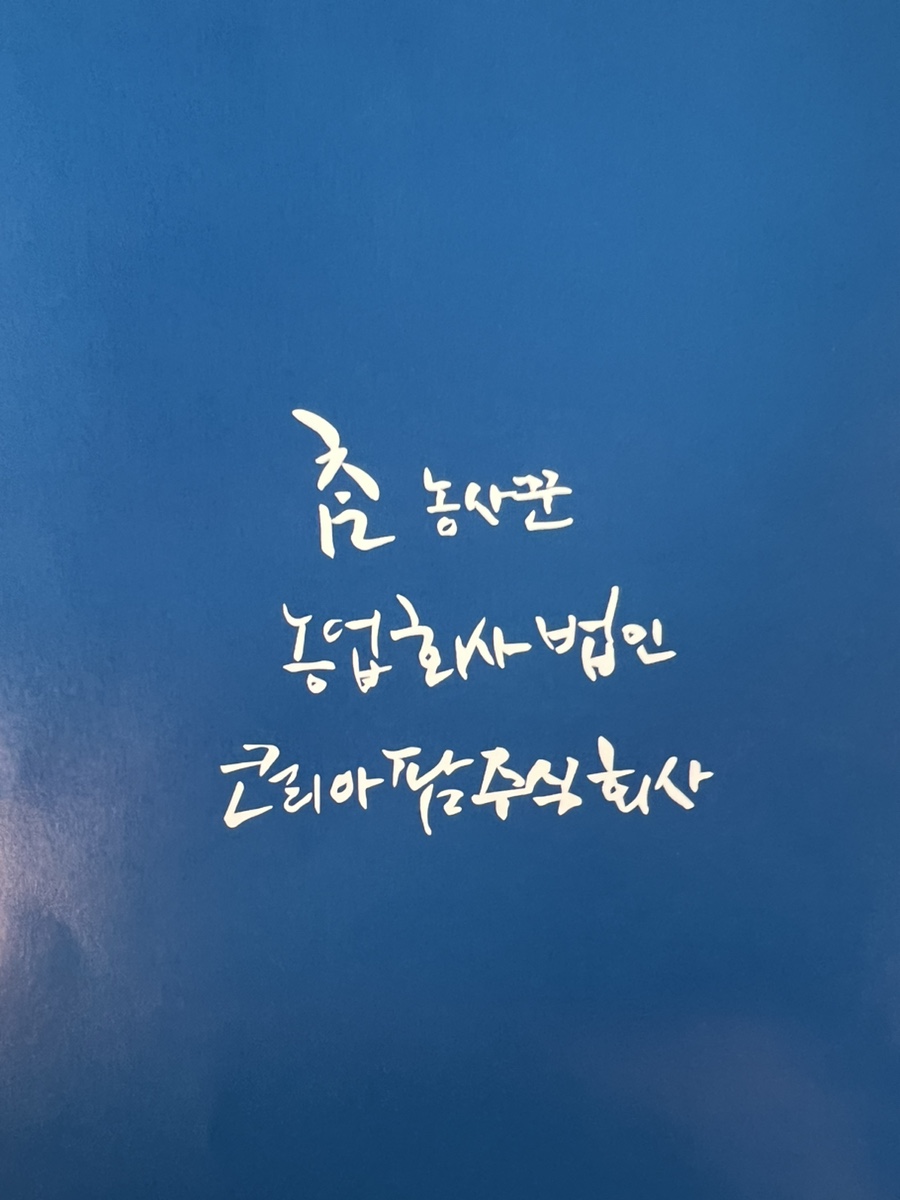 ᄎᆞᆷ 농사꾼
농업회사법인
코리아팜주식회사